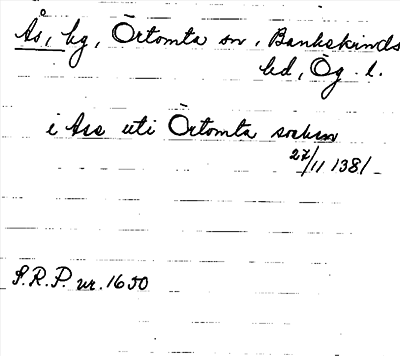 Ås, by, Örtomta sn, Bankekinds
hd, Ög. l.
i Asa uti Örtomta sokun
27/11 1381
S.R.P. nr. 1650